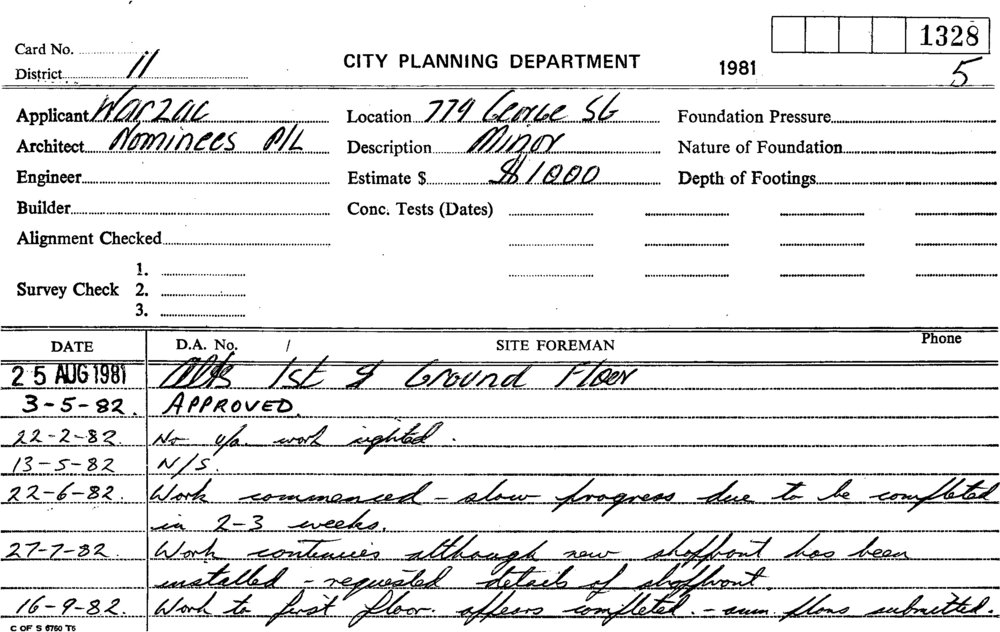 1328
Card No.
District 11
CITY PLANNING DEPARTMENT
1981
5
Applicant Warzac
Location 779 George St
Foundation Pressure
Architect Nominees P/L
Description Minor
Nature of Foundation
Engineer
Estimate $ $1000
Depth of Footings
Builder
Conc. Tests (Dates)
Alignment Checked
1.
Survey Check 2.
3.
DATE D.A. No. / SITE FOREMAN Phone
25 AUG 1981 Alts 1st & Ground Floor
3-5-82. APPROVED.
22-2-82. No u/a. work sighted.
13-5-82 N/S.
22-6-82. Work commenced - slow progress due to be completed
in 2-3 weeks.
27-7-82. Work continues although new shopfront has been
installed - requested details of shopfront.
16-9-82. Work to first floor. appears completed. - plans submitted.
C OF S 6760 T5